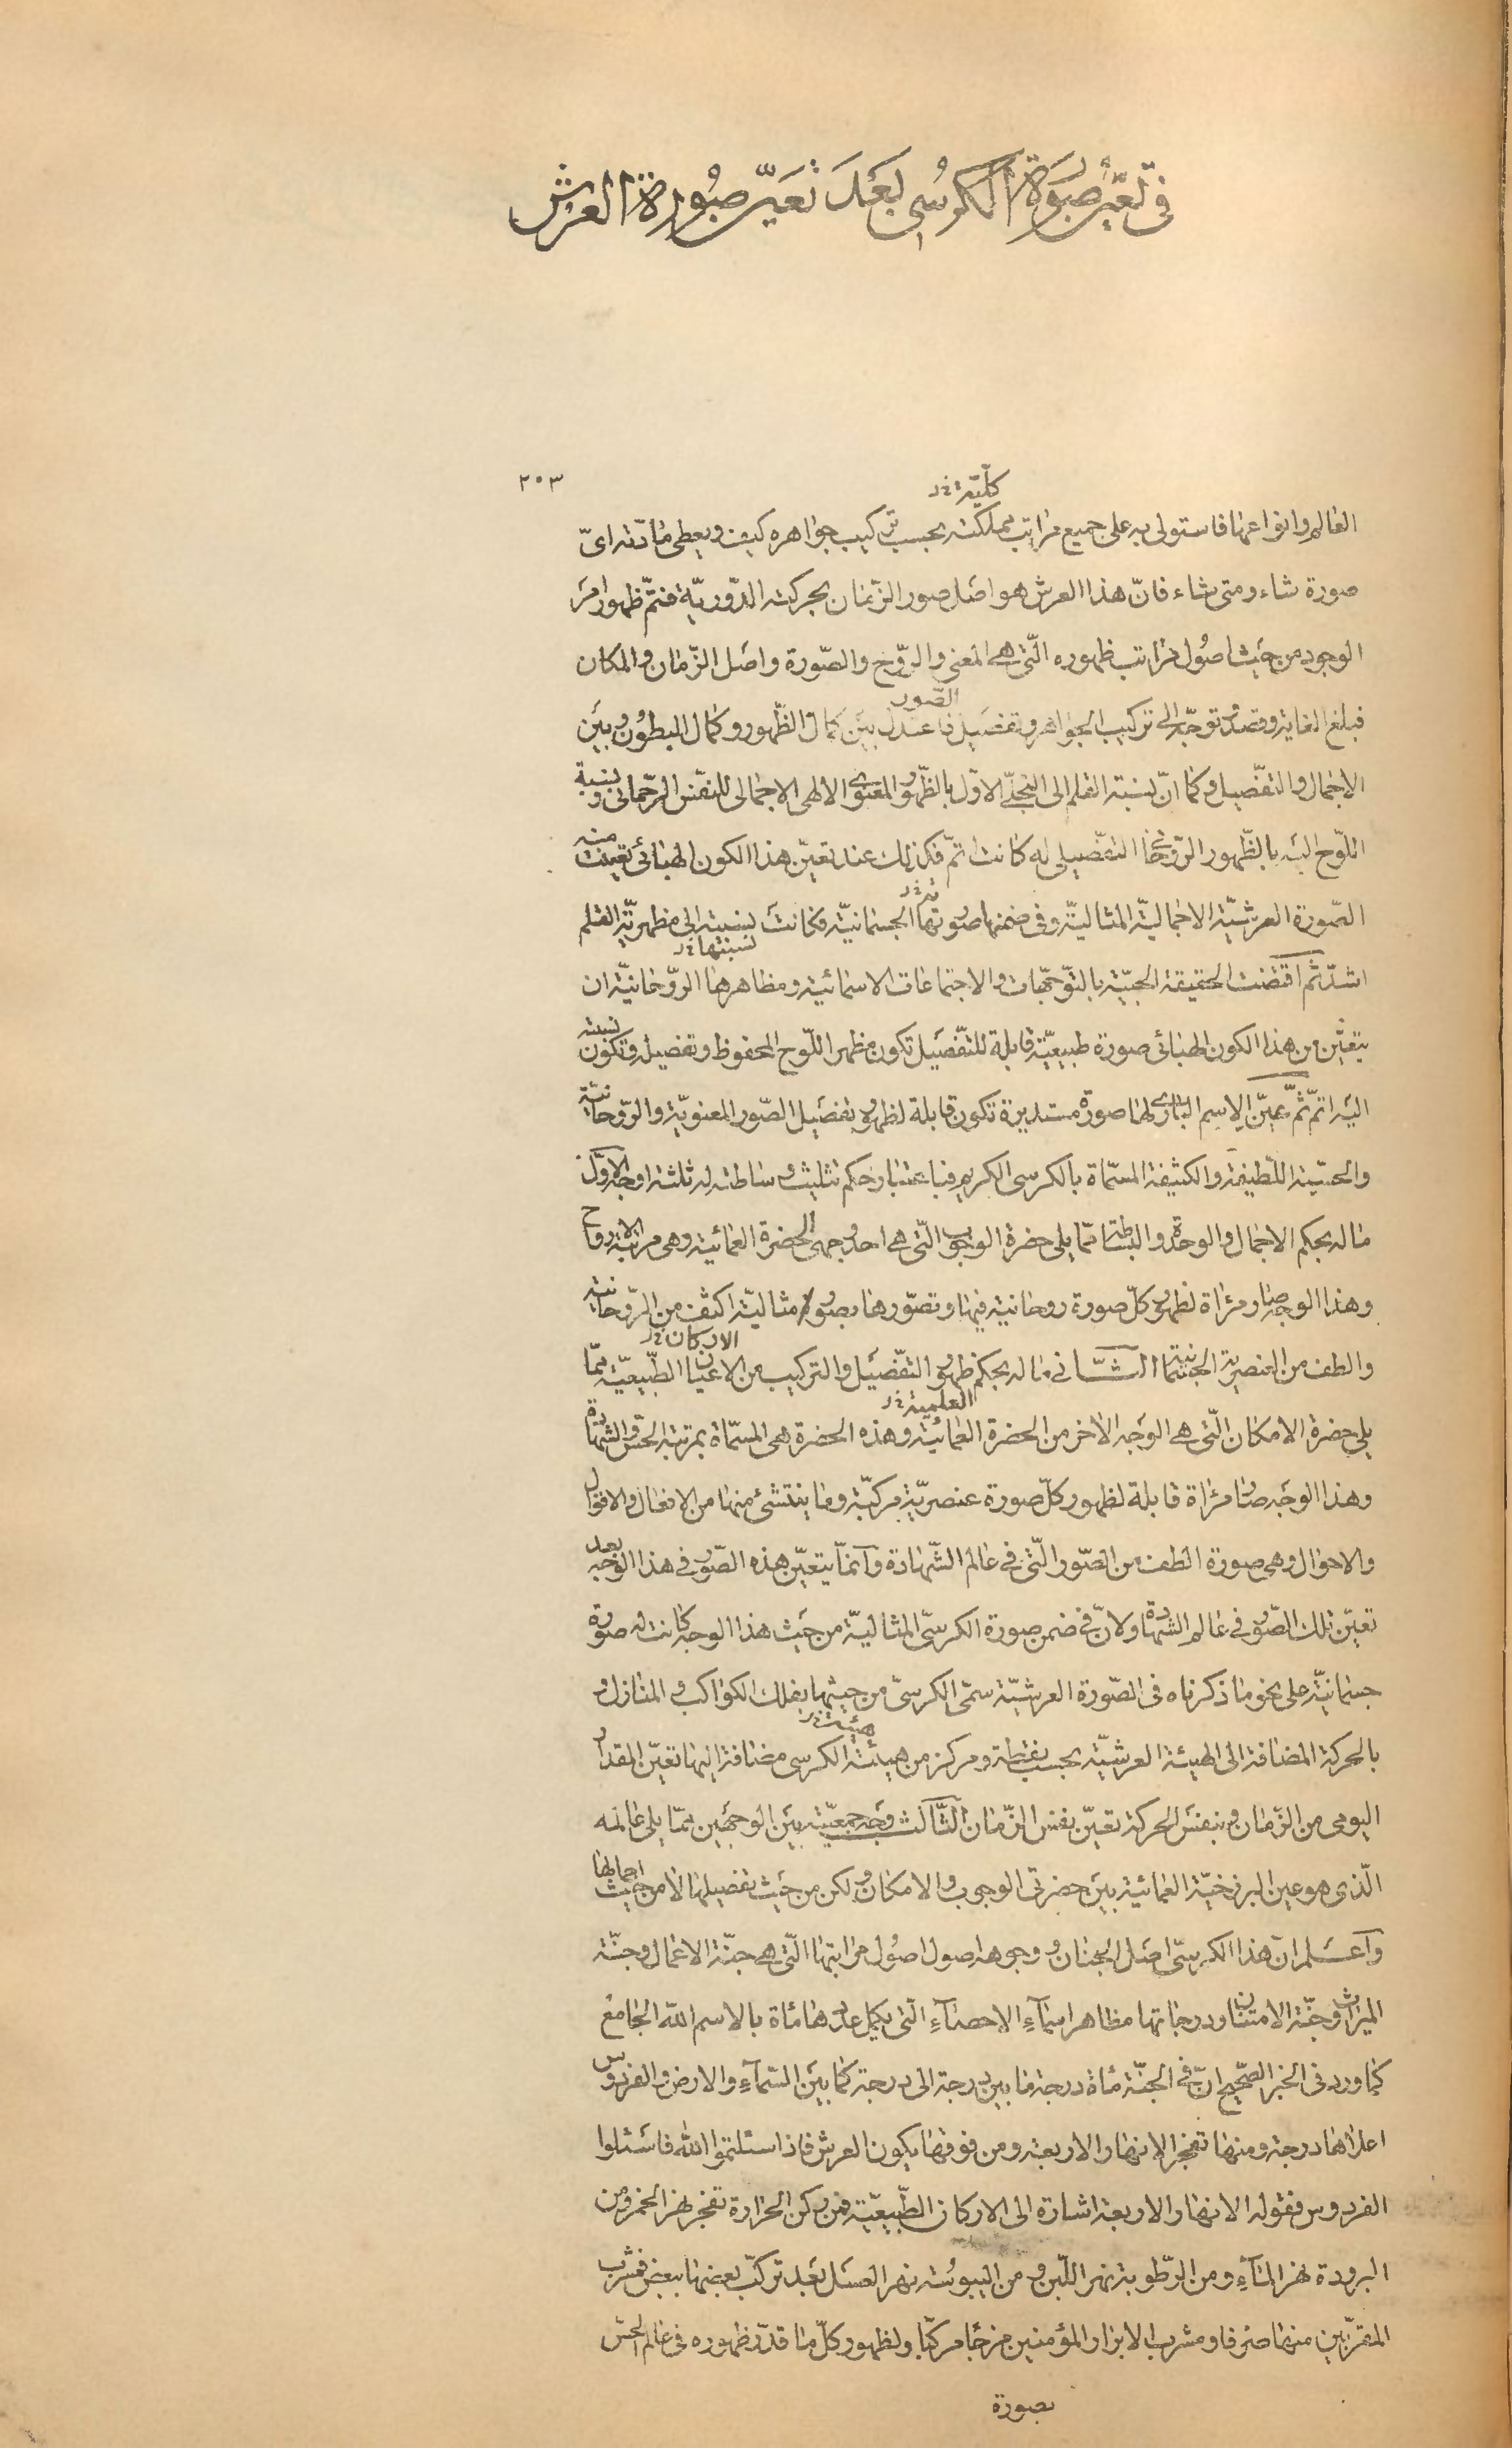 فى تعيّن صورة الكرسى بعد تعيّن صورة العرش
٢٠٣
كلّيّة خ‍ د
العالم وانواعها فاستولى به على جميع مراتب مملكته بحسب تركيب جواهره كيف ويعطى مادّته اىّ
صورة شاء ومتى شاء فانّ هذا العرش هو اصل صور الزمان بحركته الدّوريّة فتمّ ظهور امر
الوجود من حيث اصول مراتب ظهوره الّتى هى المعنى والرّوح والصّورة واصل الزّمان والمكان
الصّور
فبلغ الغاية وقصد وتوجّه الى تركيب الجواهر وتفصيل فاعتدل بين كمال الظّهور وكمال البطون وبين
الاجمال والتفصيل وكما انّ نسبة القلم الى التجلّى الاوّل بالظّهور المعنوى الالهى الاجمالى للنفس الرّحمانى ونسبة
اللّوح اليه بالظّهور الرّوحانى التفصيلى له كانت اتمّ فكذلك عند تعيّن هذا الكون الهبائى تعيّنت منه
الصّورة العرشيّة الاجماليّة المثاليّة وفى ضمنها صورتها الجسمانيّة فكانت نسبته الى مظهريّة القلم
نسبتها خ‍ د
اشدّ ثم اقتضت الحقيقة الحبيّة بالتوجّهات والاجتماعات الاسمائية ومظاهرها الرّوحانيّة ان
يتعيّن من هذا الكون الهبائى صورة طبيعيّة قابلة للتّفصيل تكون مظهر اللّوح المحفوظ وتفصيله وتكون نسبته
اليه اتمّ ثمّ عيّن الاسم البارى لها صورة مستديرة تكون قابلة لظهور تفصيل الصّور المعنويّة والرّوحانيّة
والحسّية اللّطيفة والكثيفة المسمّاة بالكرسى الكريم فباعتبار حكم تثليث وساطته له ثلثة اوجه الاوّل
ما له بحكم الاجمال والوحدة والبساطة ممّا يلى حضرة الوجوب الّتى هى احد وجهى الحضرة العمائية وهى مرتبة الارواح
وهذا الوجه صار مرآة لظهور كلّ صورة روحانية فيها وتصوّرها بصور مثاليّة اكثف من الرّوحانية
الاركان خ‍ د
والطف من العنصرية الجسمانية الثّانى ما له بحكم ظهور التفصيل والتركيب من الاعيان الطّبيعيّة ممّا
العلمية خ‍ د
يلى حضرة الامكان الّتى هى الوجه الاخر من الحضرة العمائية وهذه الحضرة هى المسمّاة بمرتبة الحسّ والشهادة
وهذا الوجه صار مرآة قابلة لظهور كلّ صورة عنصريّة مركّبة وما ينتشئ منها من الافعال والاقوال
والاحوال وهى صورة الطف من الصّور الّتى فى عالم الشّهادة وانّما يتعيّن هذه الصّور فى هذا الوجه بعد
تعيّن تلك الصّور فى عالم الشهادة ولانّ فى ضمن صورة الكرسىّ المثاليّة من حيث هذا الوجه كانت له صورة
جسمانيّة على نحو ما ذكرناه فى الصّورة العرشيّة سمّى الكرسىّ من حيثها بفلك الكواكب والمنازل و
هيئته خ‍ د
بالحركة المضافة الى الهيئة العرشيّة بحسب نقطة ومركز من هيئة الكرسى مضافة اليها تعيّن المقدار
اليومى من الزّمان وبنفس الحركة تعيّن نفس الزّمان الثّالث وجه جمعيّته بين الوجهين ممّا يلى عالمه
الّذى هو عين البرزخيّة العمائية بين حضرتى الوجوب والامكان ولكن من حيث تفصيلها لا من حيث اجمالها
واعلم انّ هذا الكرسىّ اصل الجنان ووجوهه اصول اصول مراتبها الّتى هى جنّة الاعمال وجنّة
الميراث وجنّة الامتنان ودرجاتها مظاهر اسماء الاحصاء الّتى يكمل عددها مأة بالاسم اللّه الجامع
كما ورد فى الخبر الصّحيح انّ فى الجنّة مأة درجة ما بين درجة الى درجة كما بين السّماء والارض والفردوس
اعلاها درجة ومنها تفجر الانهار الاربعة ومن فوقها يكون العرش فاذا سئلتموا اللّه فاسئلوا
الفردوس فقوله الانهار الاربعة اشارة الى الاركان الطّبيعيّة فمن ركن الحرارة تفجر نهر الخمر ومن
البرودة نهر الماء ومن الرّطوبة نهر اللّبن ومن اليبوسة نهر العسل بعد تركّب بعضها ببعض فمشرب
المقرّبين منها صرفا ومشرب الابرار المؤمنين مزجا مركّبا ولظهور كلّ ما قدّر ظهوره فى عالم الحسّ
بصورة